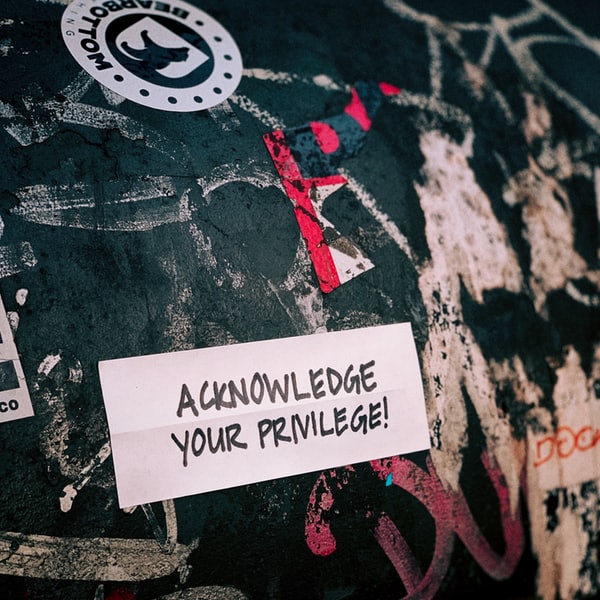 BEARBOTTOM
HING
ACKNOWLEDGE
YOUR PRIVILEGE!
co
DOCK